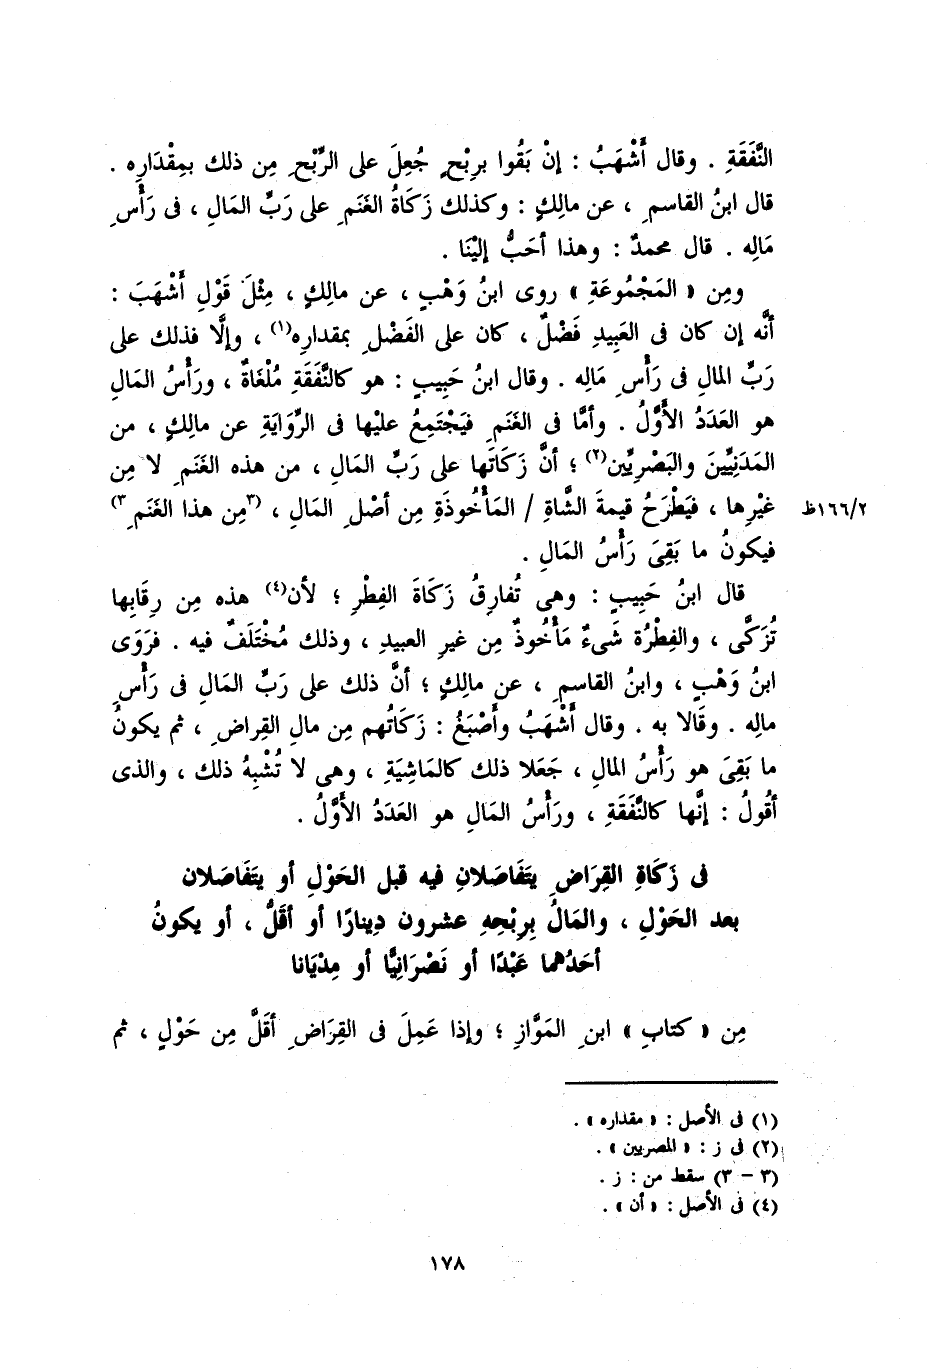 النَّفَقَةِ . وقال أَشْهَبُ : إنْ بَقُوا برِبْحٍ جُعِلَ على الرِّبْحِ مِن ذلك بمِقْدَارِه .
قال ابنُ القاسمِ ، عن مالِكٍ : وكذلك زَكَاةُ الغَنَمِ على رَبِّ المَالِ ، فى رَأْسِ
مَالِه . قال محمدٌ : وهذا أحَبُّ إلَيْنَا .
ومِن « المَجْمُوعَةِ » روى ابنُ وَهْبٍ ، عن مالِكٍ ، مِثْلَ قَوْلِ أَشْهَبَ :
أنَّه إن كان فى العَبِيدِ فَضْلٌ ، كان على الفَضْلِ بمقدارِه(١) ، وإلَّا فذلك على
رَبِّ المالِ فى رَأْسِ مَالِه . وقال ابنُ حَبِيبٍ : هو كالنَّفَقَةِ مُلْغَاةٌ ، ورَأْسُ المَالِ
هو العَدَدُ الأَوَّلُ . وأمَّا فى الغَنَمِ فيَجْتَمِعُ عليْها فى الرِّوَايَةِ عن مالِكٍ ، من
المَدَنِيِّينَ والبَصْرِيِّين(٢) ؛ أنَّ زَكَاتَها على رَبِّ المَالِ ، من هذه الغَنَمِ لا مِن
غيْرِها ، فيَطْرَحُ قيمةَ الشَّاةِ / المَأْخُوذَةِ مِن أصْلِ المَالِ ، (٣مِن هذا الغَنَمِ٣) ١٦٦/٢ظ
فيكونُ ما بَقِىَ رَأْسُ المَالِ .
قال ابنُ حَبِيبٍ : وهى تُفارِقُ زَكَاةَ الفِطْرِ ؛ لأن(٤) هذه مِن رِقَابِها
تُزَكَّى ، والفِطْرُة شَىءٌ مَأْخُوذٌ مِن غيرِ العبيدِ ، وذلك مُخْتَلَفٌ فيه . فرَوَى
ابنُ وَهْبٍ ، وابنُ القاسمِ ، عن مالِكٍ ؛ أنَّ ذلك على رَبِّ المَالِ فى رَأْسِ
مالِه . وقَالا به . وقال أَشْهَبُ وأَصْبَغُ : زَكَاتُهم مِن مالِ القِراضِ ، ثم يكونُ
ما بَقِىَ هو رَأْسُ المالِ ، جَعَلا ذلك كالمَاشِيَةِ ، وهى لا تُشْبِهُ ذلك ، والذى
أقُولُ : إنَّها كالنَّفَقَةِ ، ورَأْسُ المَالِ هو العَدَدُ الأَوَّلُ .
فى زَكَاةِ القِرَاضِ يتَفَاصَلانِ فيه قبل الحَوْلِ أو يتَفَاصَلان
بعد الحَوْلِ ، والمَالُ بِرِبْحِهِ عشرون دِينارًا أو أقَلُّ ، أو يكونُ
أحَدُهما عَبْدًا أو نَصْرَانِيًّا أو مِدْيَانا
مِن « كتابِ » ابنِ المَوَّازِ ؛ وإذا عَمِلَ فى القِرَاضِ أقَلَّ مِن حَوْلٍ ، ثم
(١) فى الأصل : « مقداره » .
(٢) فى ز : « المصريين » .
(٣ – ٣) سقط من : ز .
(٤) فى الأصل : « أن » .
١٧٨